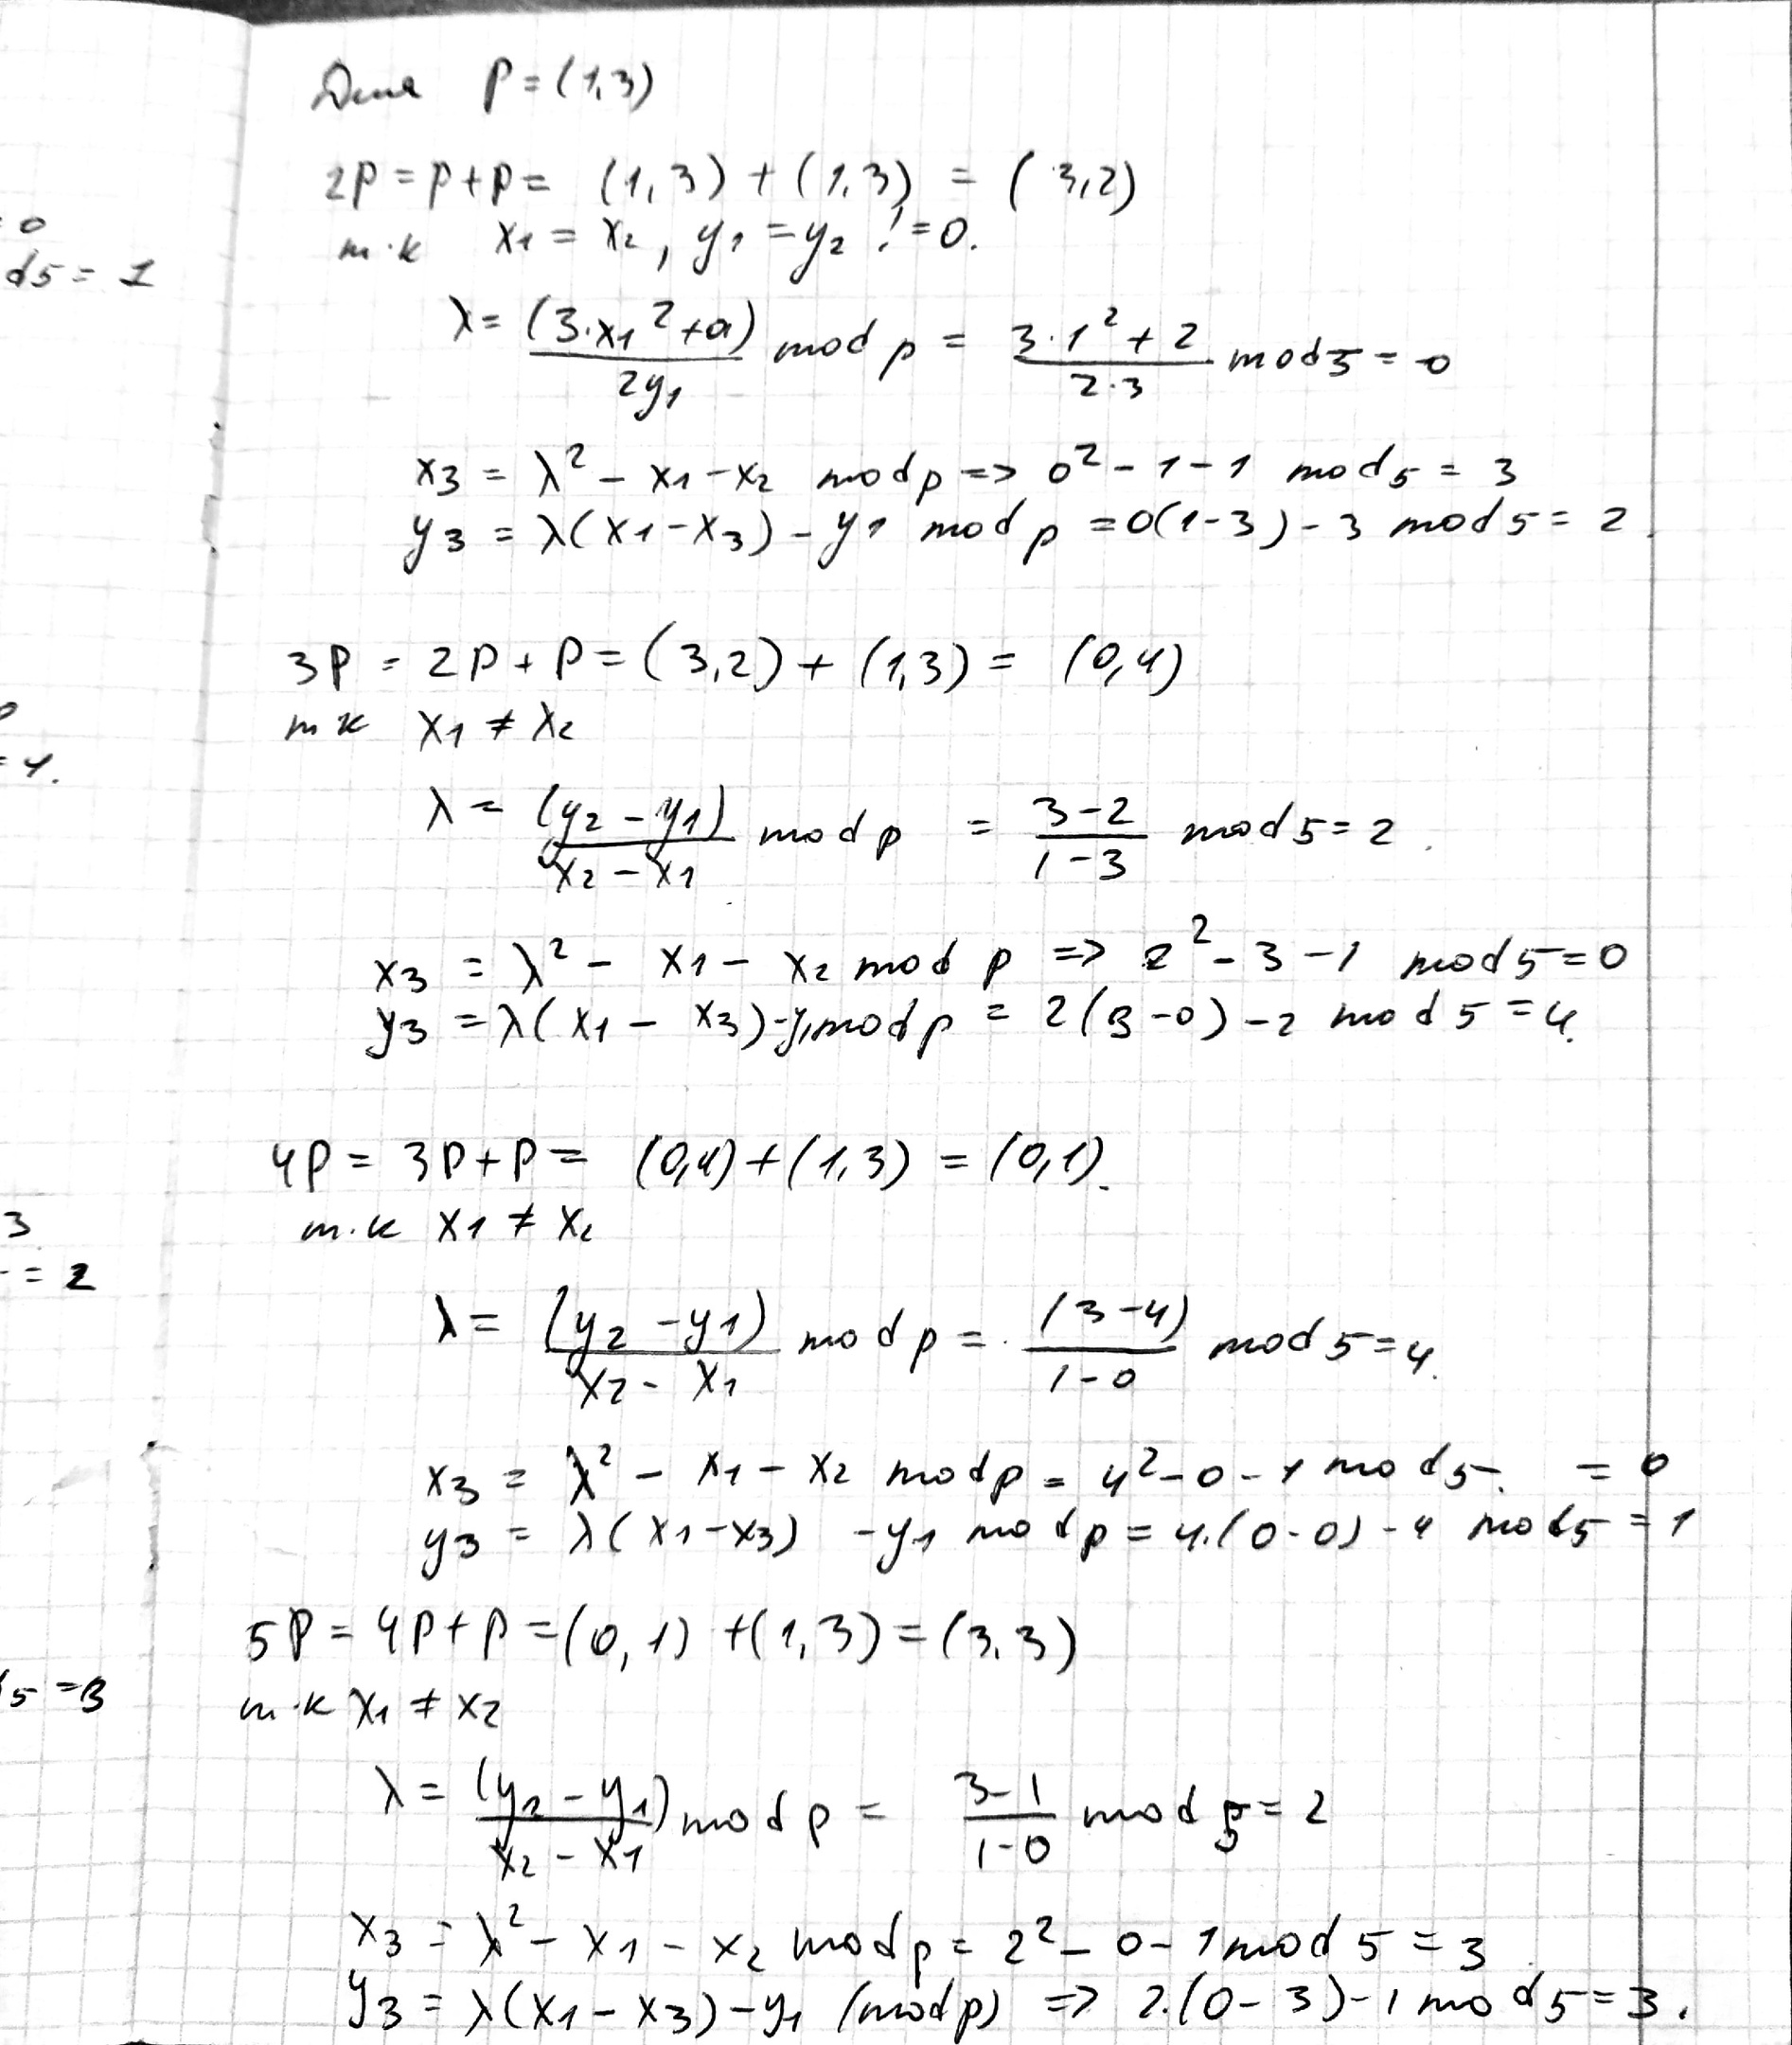 = 0
d5 = 1
= 4.
3
= 2
5 = 3
Для P = (1,3)
2P = P+P = (1,3) + (1,3) = (3,2)
т.к x1 = x2, y1 = y2 != 0.
λ = (3·x1² + a) / 2y1 mod p = 3·1² + 2 / 2·3 mod 5 = 0
x3 = λ² - x1 - x2 mod p => 0² - 1 - 1 mod 5 = 3
y3 = λ(x1 - x3) - y1 mod p = 0(1-3) - 3 mod 5 = 2.
3P = 2P + P = (3,2) + (1,3) = (0,4)
т к x1 ≠ x2
λ = (y2 - y1) / x2 - x1 mod p = 3-2 / 1-3 mod 5 = 2.
x3 = λ² - x1 - x2 mod p => 2² - 3 - 1 mod 5 = 0
y3 = λ(x1 - x3) - y1 mod p = 2(3-0) - 2 mod 5 = 4.
4P = 3P+P = (0,4) + (1,3) = (0,1).
т.к x1 ≠ x2
λ = (y2 - y1) / x2 - x1 mod p = (3-4) / 1-0 mod 5 = 4.
x3 = λ² - x1 - x2 mod p = 4² - 0 - 1 mod 5. = 0
y3 = λ(x1 - x3) - y1 mod p = 4·(0-0) - 4 mod 5 = 1
5P = 4P + P = (0,1) + (1,3) = (3,3)
т.к x1 ≠ x2
λ = (y2 - y1) / x2 - x1 mod p = 3-1 / 1-0 mod 5 = 2
x3 = λ² - x1 - x2 mod p = 2² - 0 - 1 mod 5 = 3
y3 = λ(x1 - x3) - y1 (mod p) => 2·(0-3) - 1 mod 5 = 3.